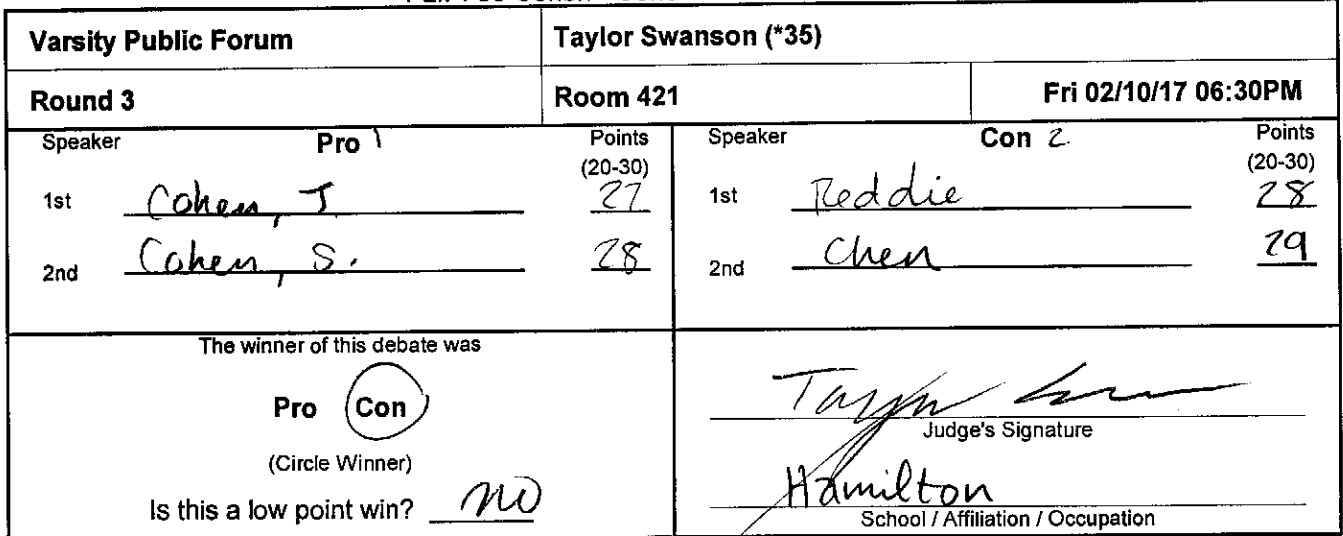 Varsity Public Forum
Taylor Swanson (*35)
Round 3
Room 421
Fri 02/10/17 06:30PM
Speaker Pro 1 Points
(20-30)
1st Cohen, J. 27
2nd Cohen, S. 28
Speaker Con 2 Points
(20-30)
1st Reddie 28
2nd Chen 29
The winner of this debate was
Pro Con
(Circle Winner)
Is this a low point win? no
Taylor
Judge's Signature
Hamilton
School / Affiliation / Occupation